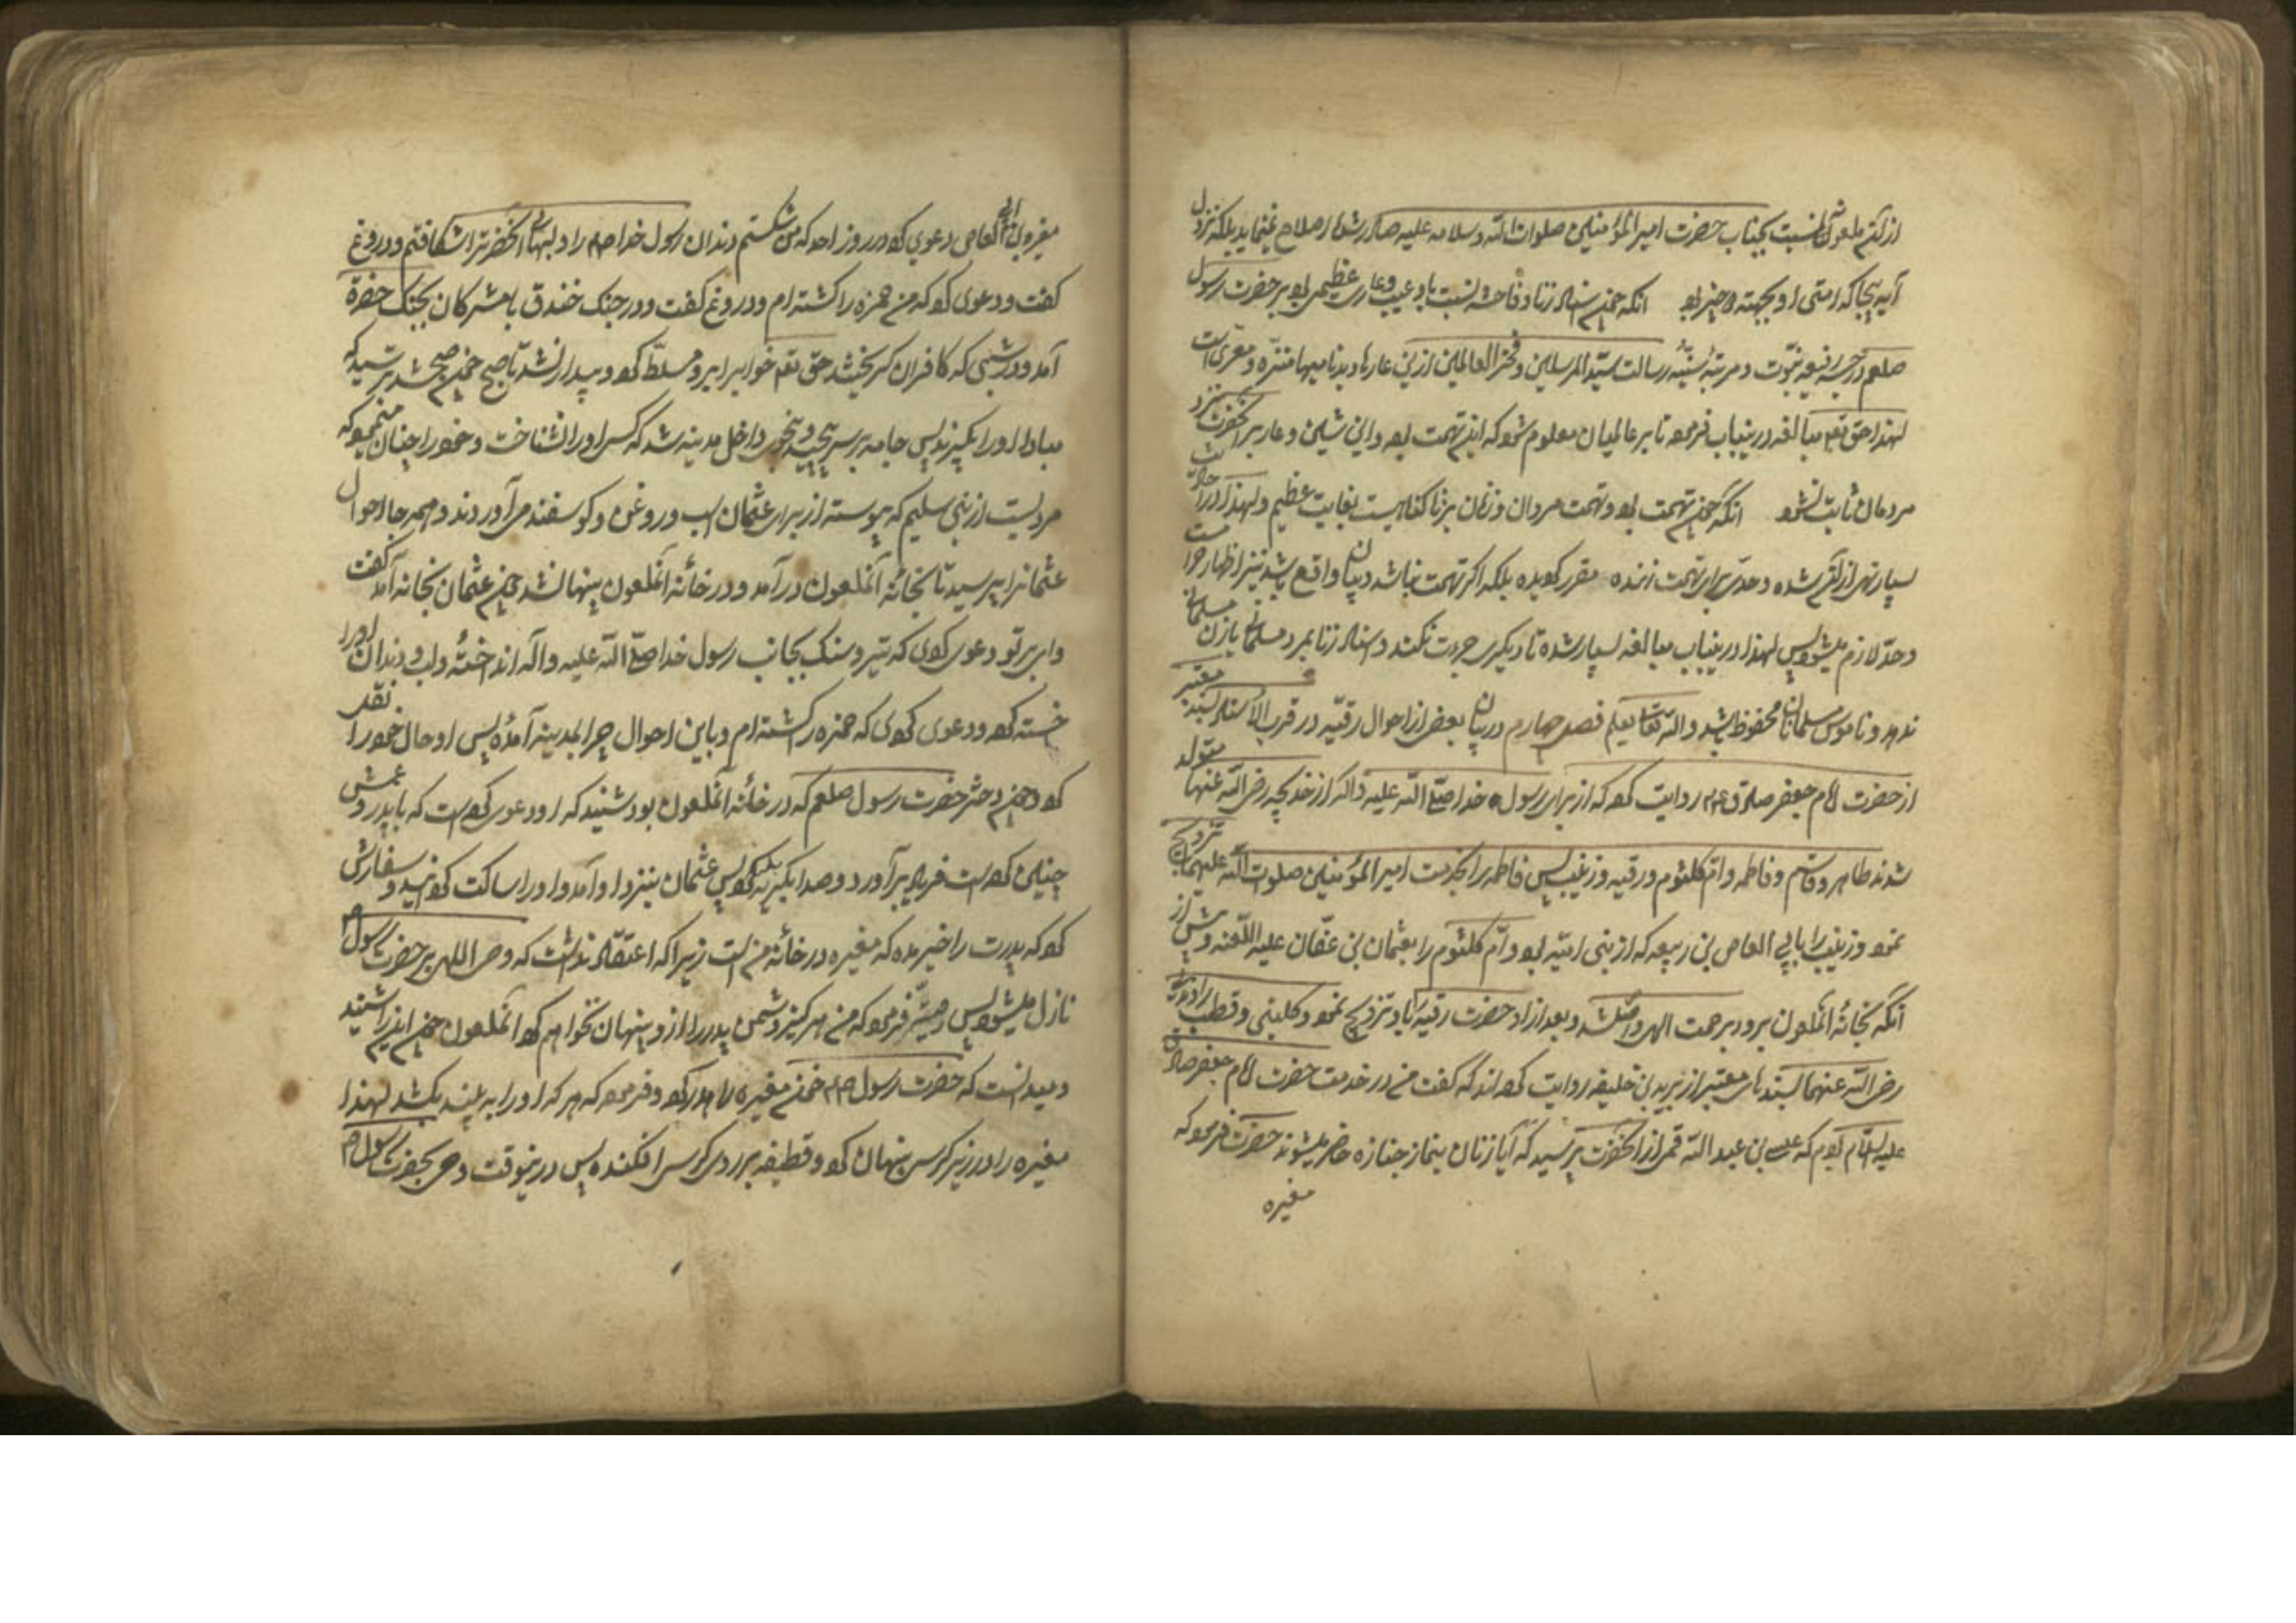 از آنکه ملعون نسبت بجناب حضرت امیرالمؤمنین صلوات الله و سلامه علیه صادر شد اصلاح نمینماید بلکه نزول
آیه بیجا که امتی او بجهته چیز بود آنکه چون اسناد زنا و فاحشه نسبت باو عیب و عار عظیمی بود بر حضرت رسول
صلعم درجه رفیعه نبوت و مرتبه سنیه رسالت سید المرسلین و فخر العالمین ازین عارها و بدنامیها منزه و معری است
لهذا حق تعم مبالغه درینباب فرموده تا بر عالمیان معلوم شود که این تهمت بود و این شین و عار بر آنحضرت نزد
مردمان ثابت نشود آنکه چون تهمت بود و تهمت مردان و زنان بزنا گناهیست بغایت عظیم و لهذا در احادیث
بسیار نهی از آن شده و حدی برای تهمت زننده مقرر کردیده بلکه اکر تهمت نباشد و بیان واقع باشد نیز اظهار حرام است
و حد لازم میشود پس لهذا درینباب مبالغه بسیار شده تا دیکری جرءت نکند و اسناد زنا بمرد مسلمان یا زن مسلمان
ندهد و ناموس مسلمانان محفوظ باشد والله تعالی یعلم فصل چهارم در بیان بعض از احوال رقیه در قرب الاسناد بسند معتبر
از حضرت امام جعفر صادق عم روایت کرده که از برای رسول خدا صلی الله علیه و آله از خدیجه رضی الله عنها متولد
شدند طاهر و قاسم و فاطمه و ام کلثوم و رقیه و زینب پس فاطمه را بحضرت امیرالمؤمنین صلوات الله علیهما تزویج
نمود و زینب را بابی العاص بن ربیعه که از بنی امیه بود و ام کلثوم را بعثمان بن عفان علیه اللعنه و پیش از
آنکه بخانه آنملعون برود برحمت الهی واصل شد و بعد از او حضرت رقیه را باو تزویج نمود و کلینی و قطب راوندی
رضی الله عنهما بسند های معتبر از یزید بن خلیفه روایت کرده اند که گفت من در خدمت حضرت امام جعفر صادق
علیه السلام بودم که عیسی بن عبد الله قمی از آنحضرت پرسید که آیا زنان بنماز جنازه حاضر میشوند حضرت فرمود که
مغیره
مغیره بن ابی العاص دعوی کرد در روز احد که من شکستم دندان رسول خدا صلم را و لبهای آنحضرت را شکافتم و دروغ
گفت و دعوی کرد که من حمزه را کشته ام و دروغ گفت و در جنک خندق با مشرکان بجنک حضرة
آمد و در شبی که کافران کریختند حق تعم خواب را بر او مسلط کرد و بیدار نشد تا صبح چون صبح شد ترسید که
مبادا او را بگیرند پس جامه بر سر پیچید و بنحوی داخل مدینه شد که کسی او را نشناخت و خود را چنان مینمود که
مردیست از بنی سلیم که پیوسته از برای عثمان اسب و روغن و کوسفند میآوردند و همه جا احوال
عثمانرا پرسید تا بخانه آنملعون درآمد و در خانه آنملعون پنهان شد چون عثمان بخانه آمد گفت
وای بر تو دعوی کردی که تیر و سنک بجانب رسول خدا صلی الله علیه و آله انداخته و لب و دندان او را
خسته کرد و دعوی کردی که حمزه را کشته ام و باین احوال چرا بمدینه آمده پس او حال خود را نقل
کرد چون دختر حضرت رسول صلعم که در خانه آنملعون بود شنید که او دعوی کرده است که با پدر و عمش
چنین کرده است فریاد برآورد و صدا بگریه بلند کرد پس عثمان بنزد او آمد و او را ساکت کردانید و سفارش
کرد که پدرت را خبر مده که مغیره در خانه من است زیرا که اعتقاد نداشت که وحی الهی بر حضرت رسول ص
نازل میشود پس دختر فرمود که من هرکز دشمن پدر را از او پنهان نخواهم کرد آنملعون چون این را شنید
و میدانست که حضرت رسول صلم خون مغیره را هدر کرد و فرمود که هر که او را به بیند بکشد لهذا
مغیره را در زیر کرسی پنهان کرد و قطیفه بر روی کرسی افکند پس درینوقت وحی بحضرت رسول ص